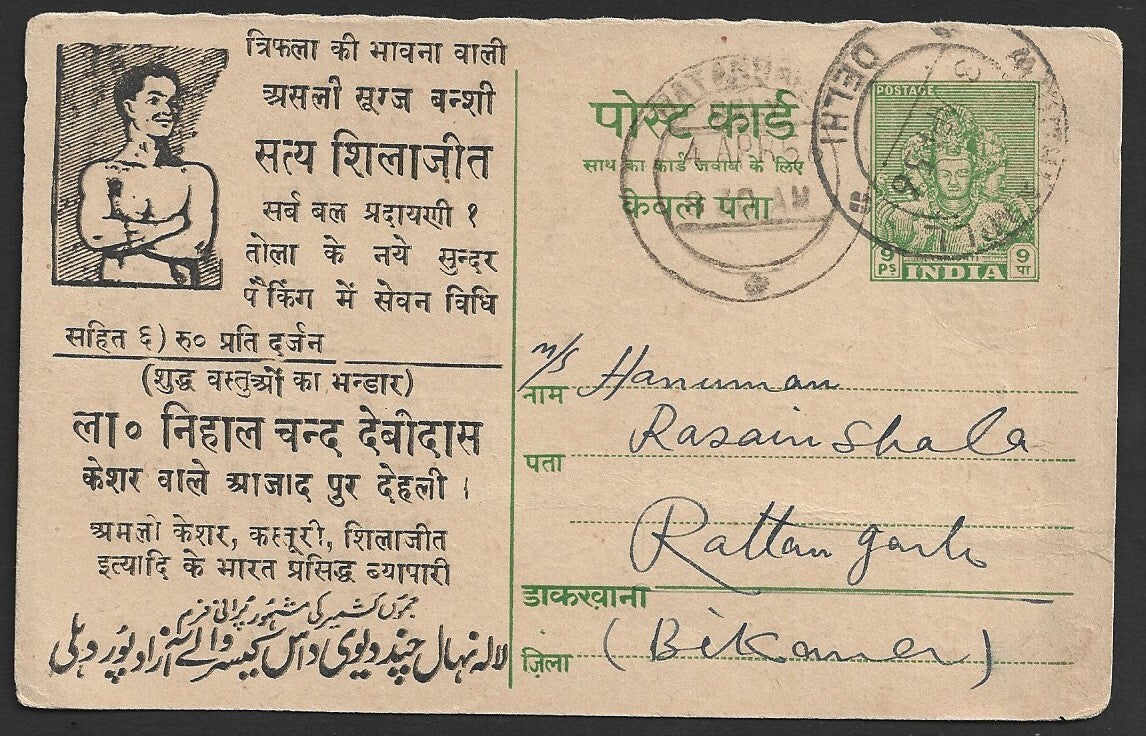 त्रिफला की भावना वाली
असली सूरज बन्शी
सत्य शिलाजीत
सर्व बल प्रदायणी १
तोला के नये सुन्दर
पैकिंग में सेवन विधि
सहित ६) रु० प्रति दर्जन
(शुद्ध वस्तुओं का भन्डार)
ला० निहाल चन्द देबीदास
केशर वाले आजाद पुर देहली ।
अमली केशर, कस्तूरी, शिलाजीत
इत्यादि के भारत प्रसिद्ध ब्यापारी
جموں کشمیر کی مشہور پرانی فرم
لالہ نہال چند دیوی داس کیسر والے آزاد پور دہلی
पोस्ट कार्ड
साथ का कार्ड जवाब के लिए
केवल पता
4 APR 5
8 30 AM
DELHI
POSTAGE
9 PS
INDIA
9 पा
नाम M/S Hanuman
पता Rasain Shala
Rattan garh
डाकखाना
ज़िला (Bikaner)